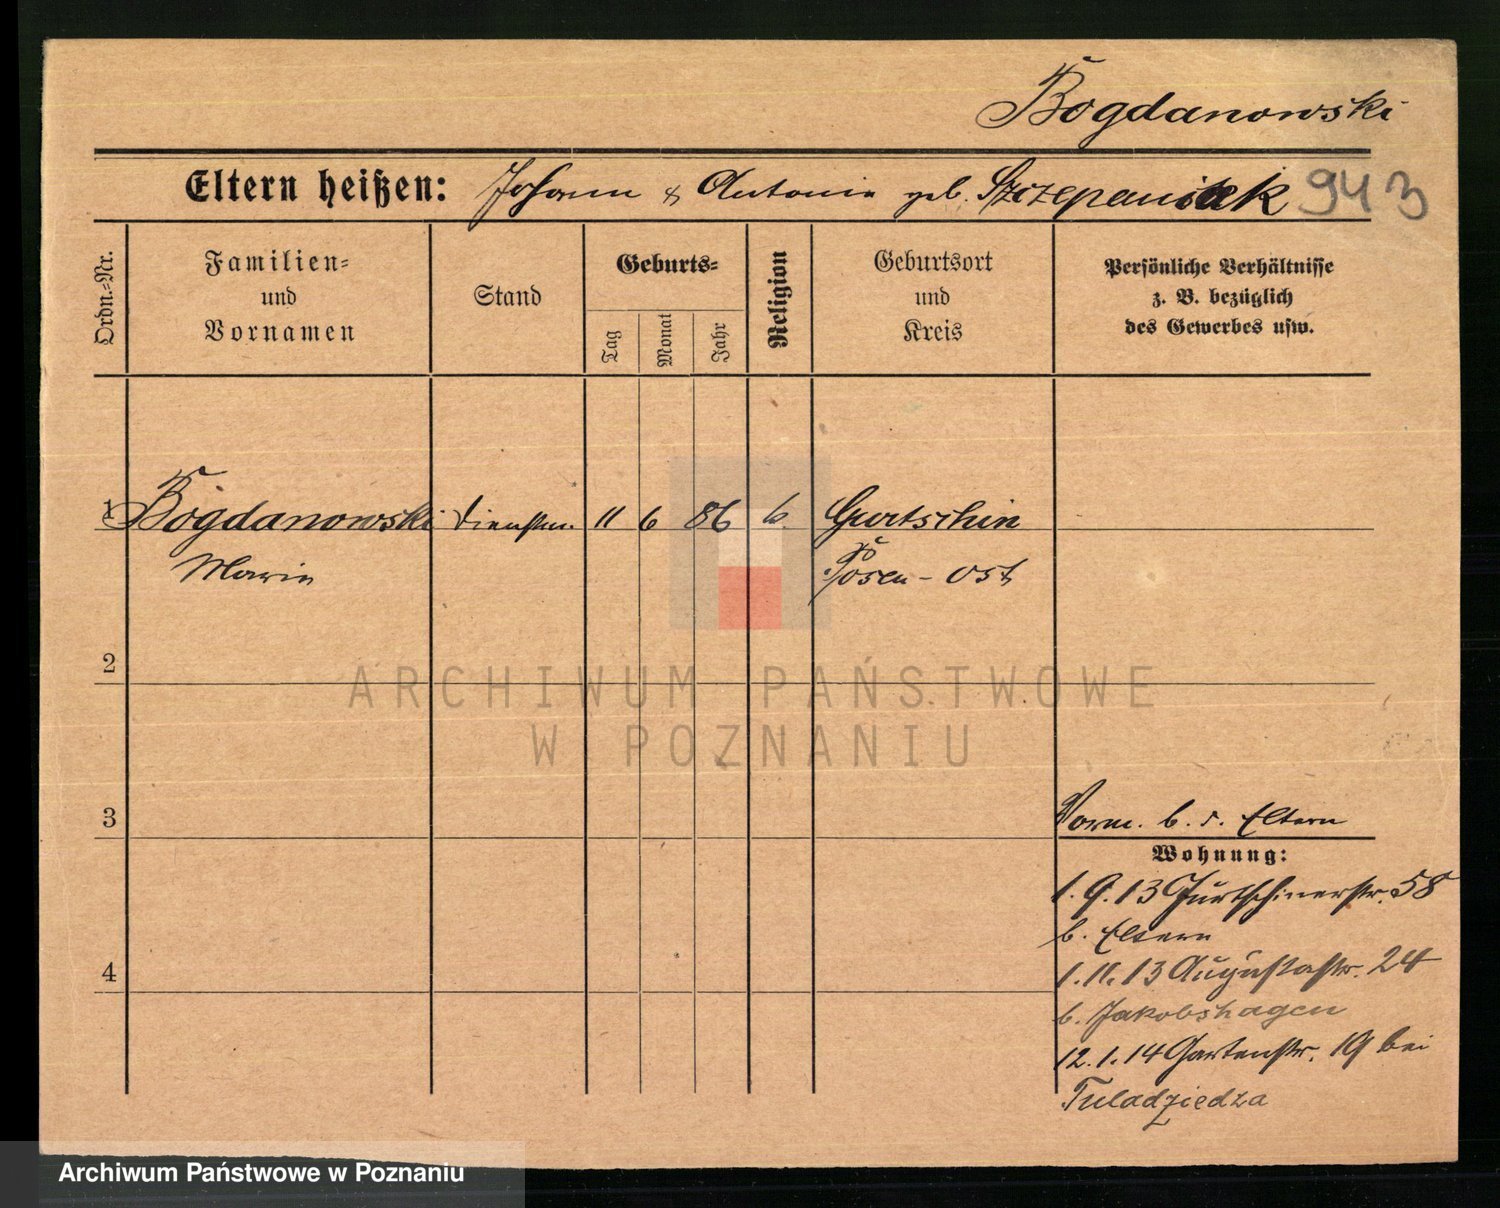 Bogdanowski
Eltern heißen: Johann & Antonie geb. Szczepaniak 943
Ordn.-Nr.
Familien- und Vornamen
Stand
Geburts-
Tag
Monat
Jahr
Religion
Geburtsort und Kreis
Persönliche Verhältnisse z. B. bezüglich des Gewerbes usw.
1 Bogdanowski Dienstm. 11 6 86 k. Gurtschin
Marie Posen-Ost
2
3
Vorm. b. d. Eltern
Wohnung:
1.9.13 Gurtschinerstr. 58
b. Eltern
4
1.11.13 Augustastr. 24
b. Jakobshagen
12.1.14 Gartenstr. 19 bei
Tuladziedza
ARCHIWUM PAŃSTWOWE
W POZNANIU
Archiwum Państwowe w Poznaniu